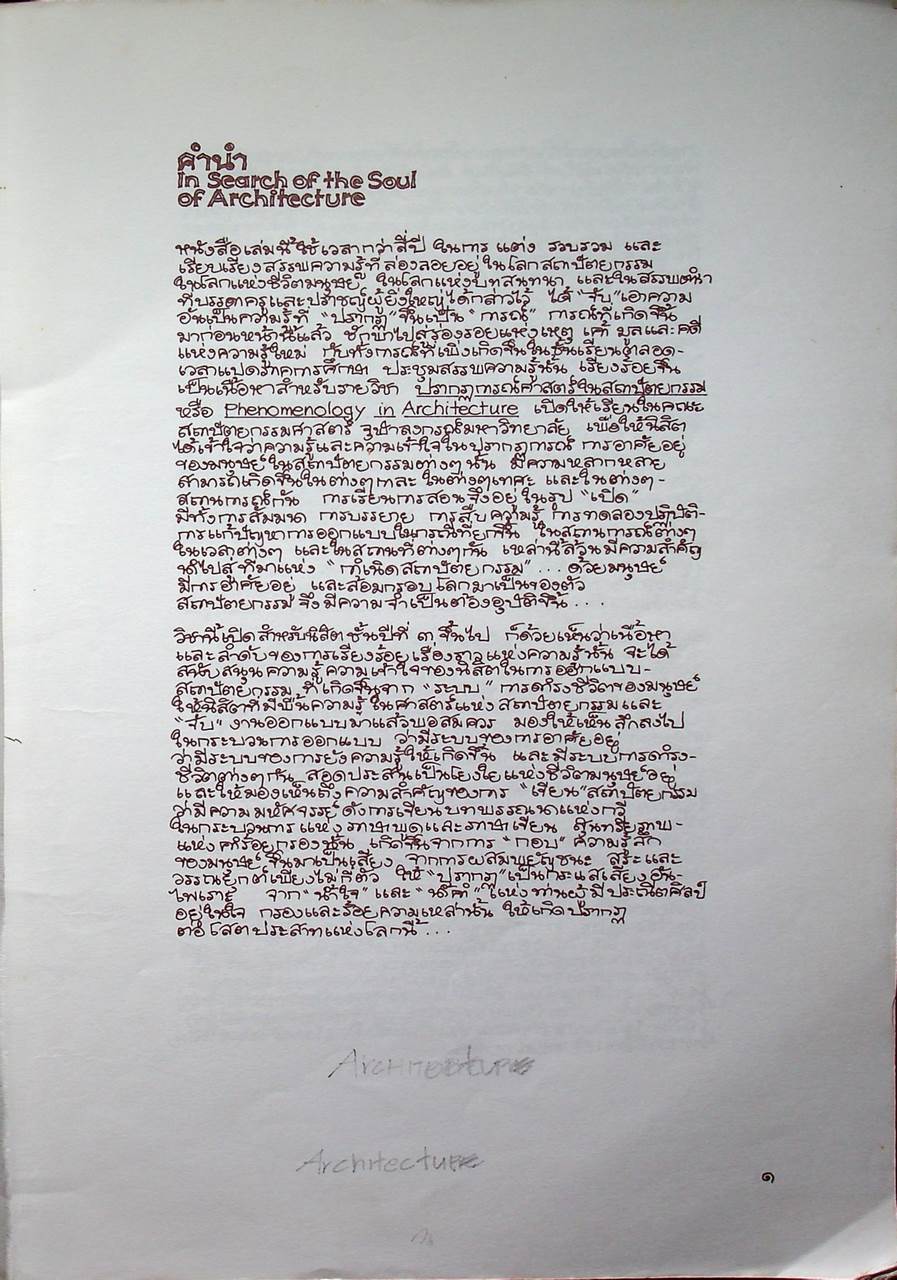 คำนำ
In Search of the Soul
of Architecture
หนังสือเล่มนี้ ใช้เวลากว่าสี่ปี ในการ แต่ง รวบรวม และ
เรียบเรียงสรรพความรู้ที่ล่องลอยอยู่ ในโลกสถาปัตยกรรม
ในโลกแห่งชีวิตมนุษย์ ในโลกแห่งบทสนทนา และในสรรพตำรา
ที่บรรดาครูและปราชญ์ผู้ยิ่งใหญ่ได้กล่าวไว้ ได้ "จับ" เอาความ
อันเป็นความรู้ที่ "ปรากฏ" ขึ้นเป็น "การณ์" การณ์ที่เกิดขึ้น
มาก่อนหน้านี้แล้ว ชักพาไปสู่ร่องรอยแห่งเหตุ เค้า มูลและคดี
แห่งความรู้ใหม่ กับทั้งการณ์ที่เพิ่งเกิดขึ้นในชั้นเรียนตลอด-
เวลาแปดภาคการศึกษา ประชุมสรรพความรู้นั้น เรียงร้อยขึ้น
เป็นเนื้อหาสำหรับรายวิชา ปรากฏการณ์ศาสตร์ในสถาปัตยกรรม
หรือ Phenomenology in Architecture เปิดให้เรียนในคณะ
สถาปัตยกรรมศาสตร์ จุฬาลงกรณ์มหาวิทยาลัย เพื่อให้นิสิต
ได้เข้าใจว่าความรู้และความเข้าใจในปรากฏการณ์ การอาศัยอยู่
ของมนุษย์ ในสถาปัตยกรรมต่างๆ นั้น มีความหลากหลาย
สามารถเกิดขึ้นในต่างๆกาละ ในต่างๆเทศะ และในต่างๆ-
สถานการณ์กัน การเรียนการสอนจึงอยู่ ในรูป "เปิด"
มีทั้งการสัมมนา การบรรยาย การสืบความรู้ การทดลองปฏิบัติ-
การแก้ปัญหาการออกแบบในกรณีที่ยกขึ้น ในสถานการณ์ต่างๆ
ในเวลาต่างๆ และในสถานที่ต่างๆกัน เหล่านี้ล้วนมีความสำคัญ
นำไปสู่ ที่มาแห่ง "กำเนิดสถาปัตยกรรม" ... ด้วยมนุษย์
มีการอาศัยอยู่ และล้อมกรอบโลกมาเป็นของตัว
สถาปัตยกรรม จึงมีความจำเป็นต้องอุบัติขึ้น ...
วิชานี้เปิดสำหรับนิสิตชั้นปีที่ ๓ ขึ้นไป ก็ด้วยเห็นว่าเนื้อหา
และลำดับของการเรียงร้อยเรื่องราวแห่งความรู้นั้น จะได้
สนับสนุนความรู้ ความเข้าใจของนิสิตในการออกแบบ-
สถาปัตยกรรม ที่เกิดขึ้นจาก "ระบบ" การดำรงชีวิตของมนุษย์
ให้นิสิตที่มีพื้นความรู้ ในศาสตร์แห่ง สถาปัตยกรรมและ
"จับ" งานออกแบบมาแล้วพอสมควร มองให้เห็นลึกลงไป
ในกระบวนการออกแบบ ว่ามีระบบของการอาศัยอยู่
ว่ามีระบบของการยังความรู้ให้เกิดขึ้น และมีระบบการดำรง-
ชีวิตต่างๆกัน สอดประสานเป็นโยงใยแห่งชีวิตมนุษย์อยู่
และให้มองเห็นถึงความสำคัญของการ "เขียน" สถาปัตยกรรม
ว่ามีความมหัศจรรย์ ดังการเขียนบทพรรณนาแห่งกวี
ในกระบวนการ แห่งภาษาพูดและภาษาเขียน สุนทรียภาพ-
แห่งคำร้อยกรองนั้น เกิดขึ้นจากการ "กอบ" ความรู้สึก
ของมนุษย์ ขึ้นมาเป็นเสียง จากการผสมพยัญชนะ สระและ
วรรณยุกต์เพียงไม่กี่ตัว ให้ "ปรากฏ" เป็นกระแสเสียงอัน-
ไพเราะ จาก "น้ำใจ" และ "น้ำคำ" แห่งท่านผู้มีประณีตศิลป์
อยู่ในใจ กรองและร้อยความเหล่านั้น ให้เกิดปรากฏ
ต่อโสตประสาทแห่งโลกนี้ ...
Architecture
Architecture
๑